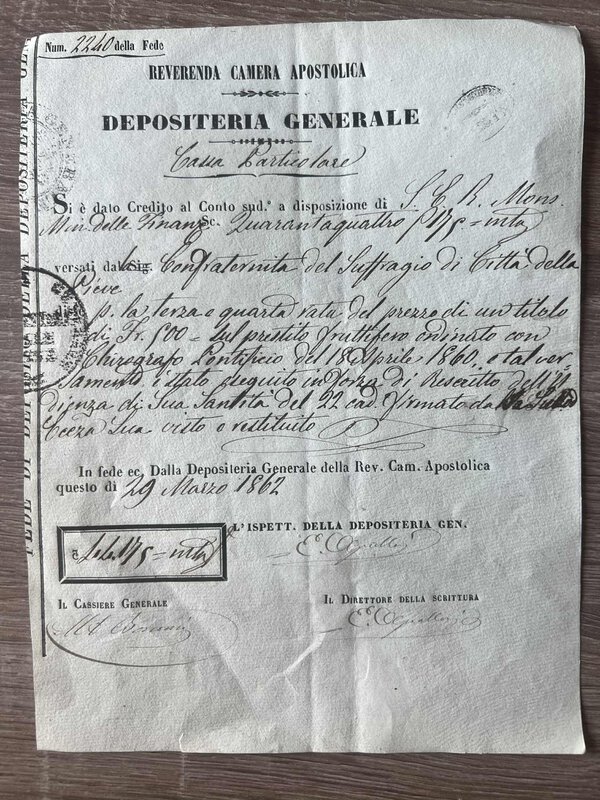 Num. 2240 della Fede
REVERENDA CAMERA APOSTOLICA
DEPOSITERIA GENERALE
Cassa Particolare
Si è dato Credito al Conto sud.° a disposizione di S. E. R. Mons
Min delle Finanz Sc. Quarantaquattro
versati dal Sig. Confraternita del Suffragio di Città della
Pieve
p. la terza e quarta rata del prezzo di un titolo
di Fr. 500 = sul prestito fruttifero ordinato con
Chirografo Pontificio del 18 Aprile 1860, e tal ver-
samento è stato eseguito in forza di Rescritto dell'U-
dienza di Sua Santità del 22 cad. firmato da
Ecceza Sua visto e restituito
In fede ec. Dalla Depositeria Generale della Rev. Cam. Apostolica
questo di 29 Marzo 1862
L'ISPETT. DELLA DEPOSITERIA GEN.
IL CASSIERE GENERALE
IL DIRETTORE DELLA SCRITTURA